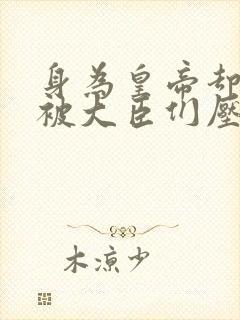 身為皇帝却
被大臣们壓
木涼少